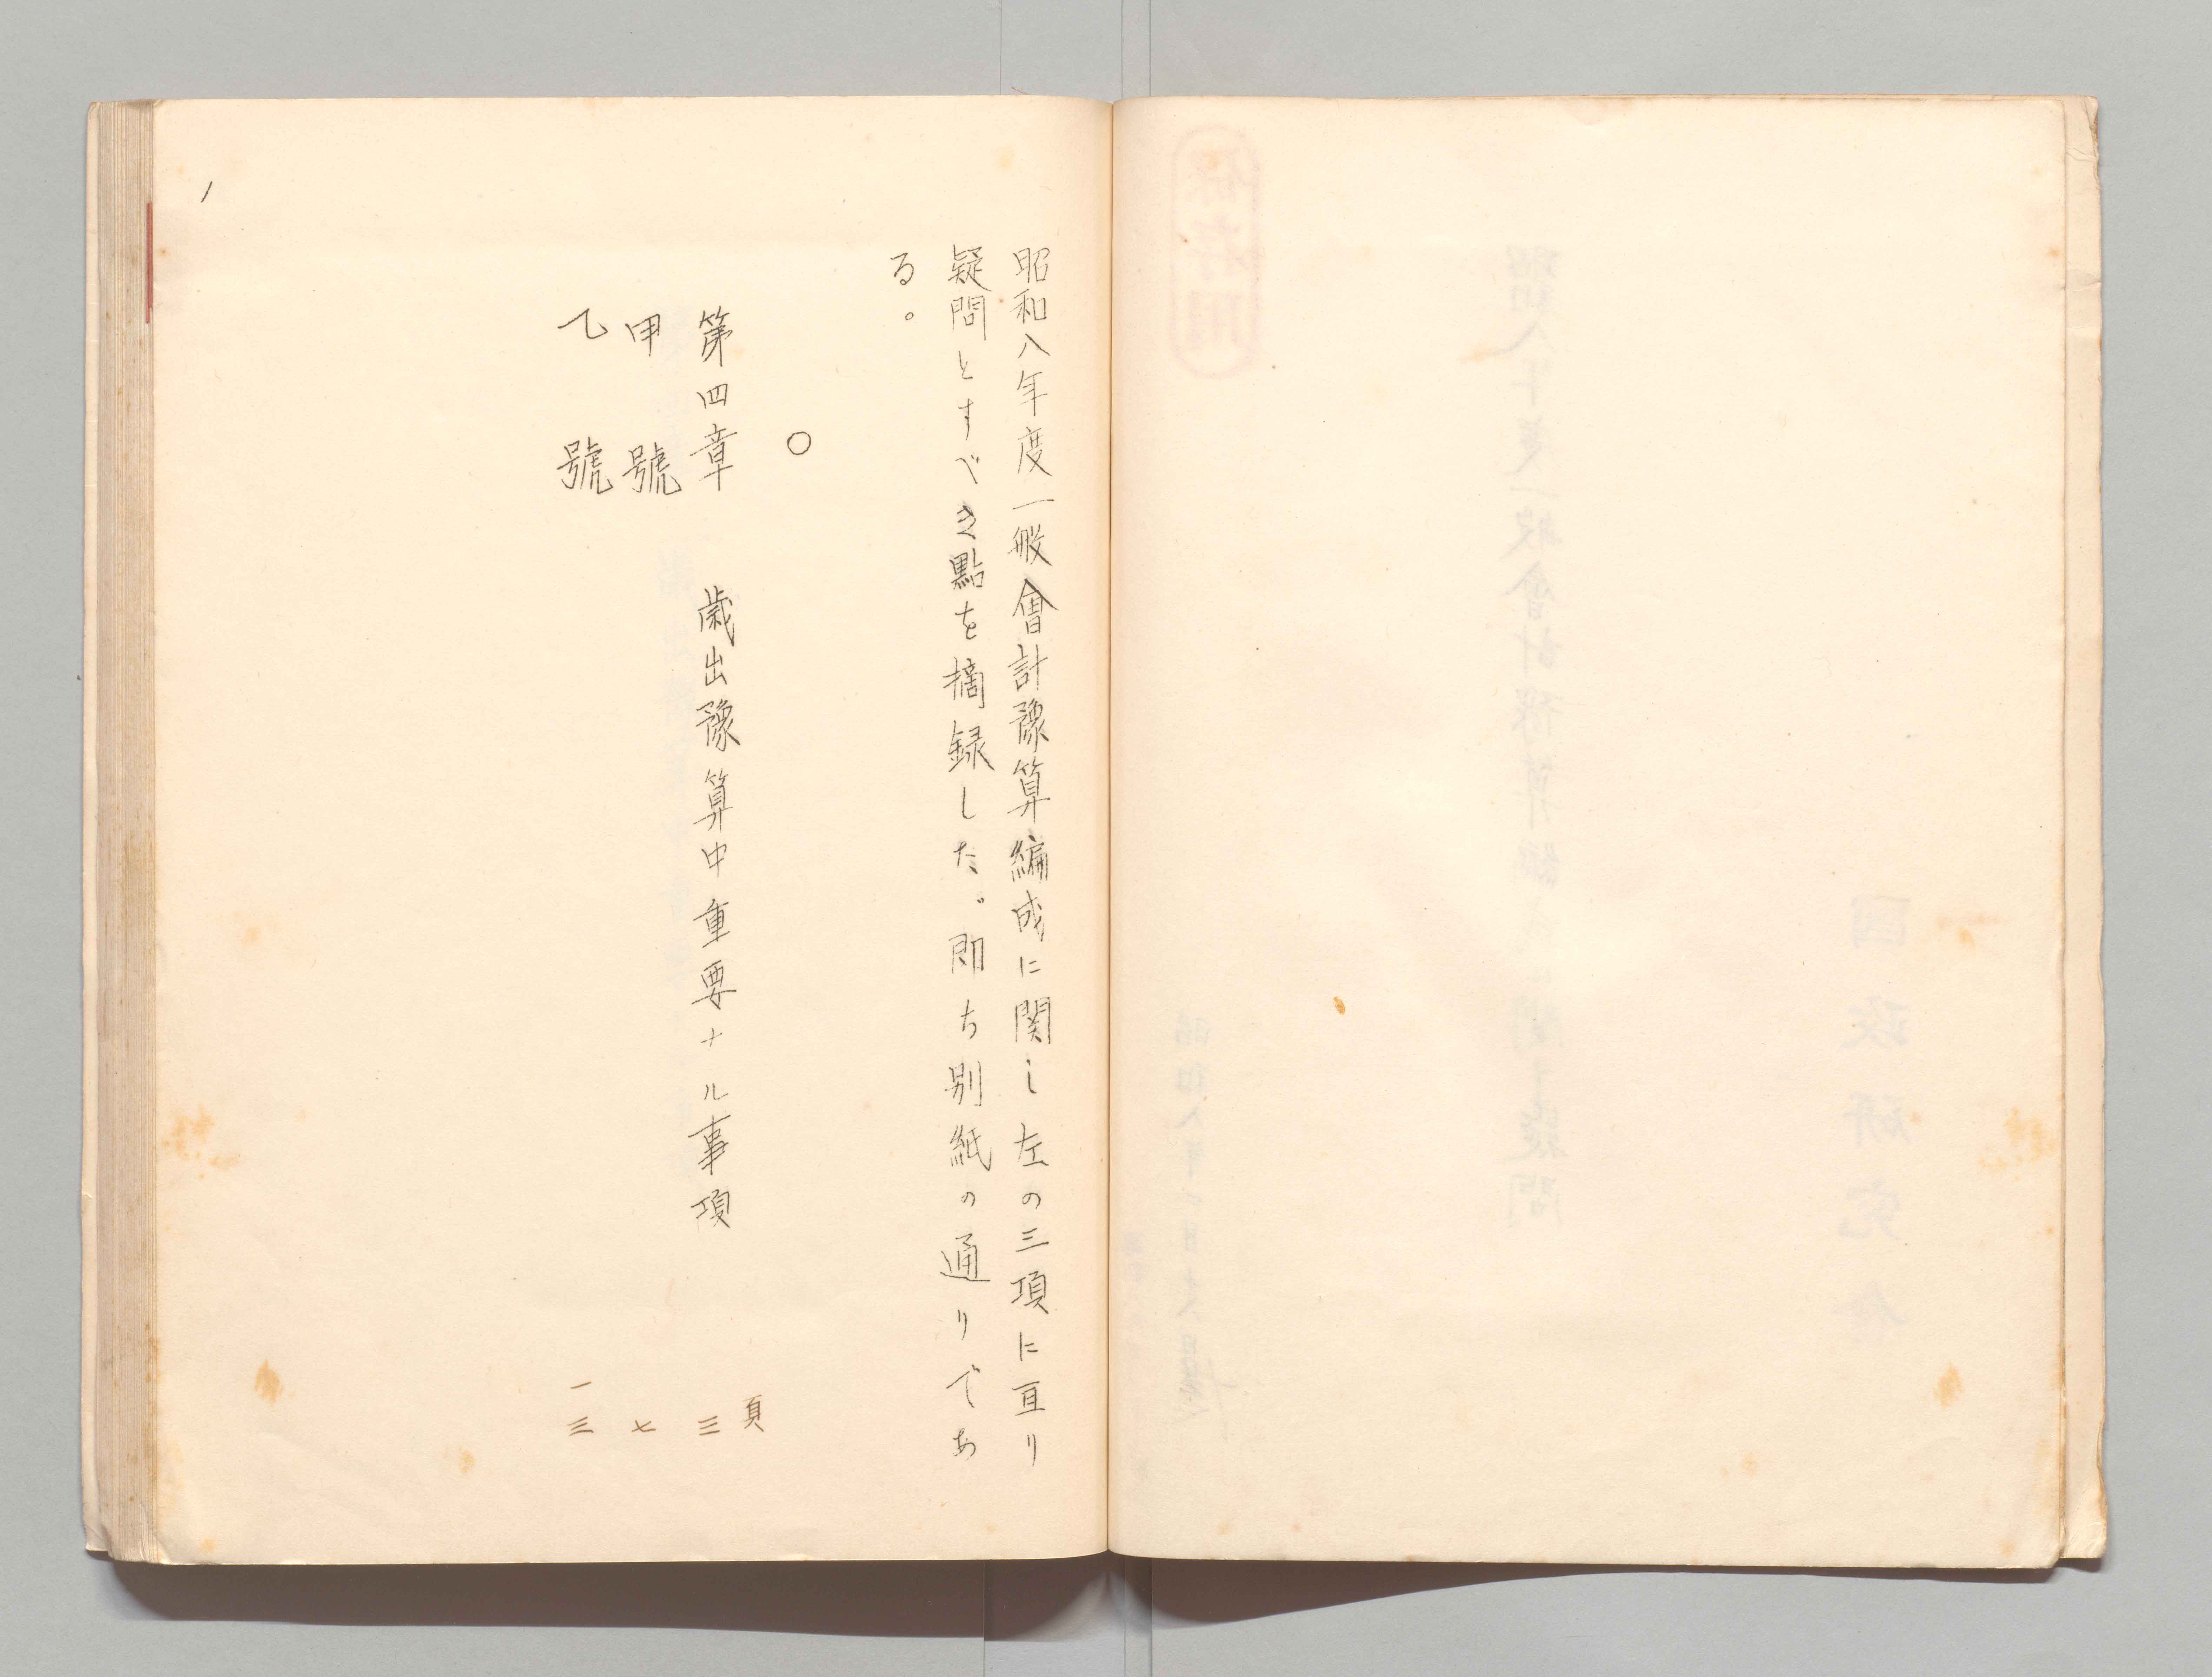 昭和八年度一般會計豫算編成に関し左の三項に亘り
疑問とすべき點を摘録した。即ち別紙の通りであ
る。
○
頁
第四章 歳出豫算中重要ナル事項 三
甲號 七
乙號 一三
1